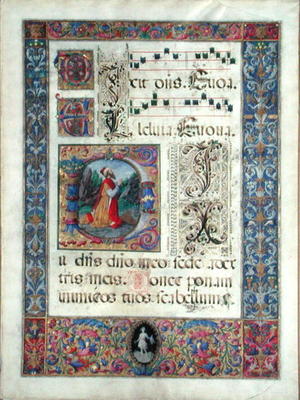 DIxit dns. Euoa.
ALleluia Euoua.
DI
dns dno meo sede
tris meis. Donec ponam
inimicos tuos scabellum